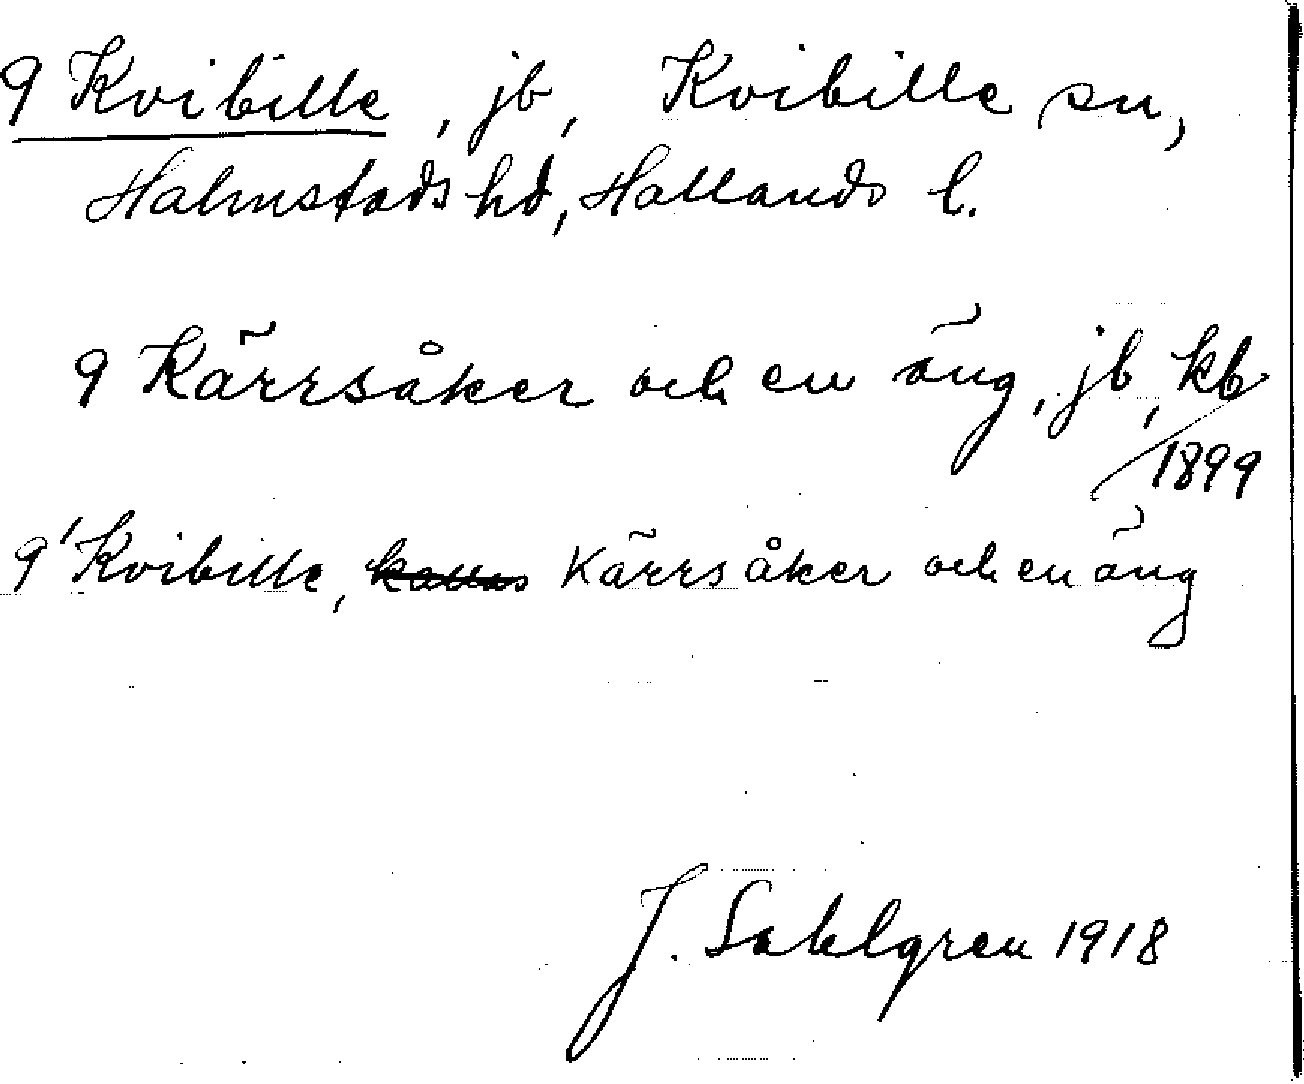 9 Kvibille, jb, Kvibille sn,
Halmstads hd, Hallands l.
9 Kärrsåker och en äng, jb, kb
1899
9' Kvibille, kallas Kärrsåker och en äng
J. Sahlgren 1918